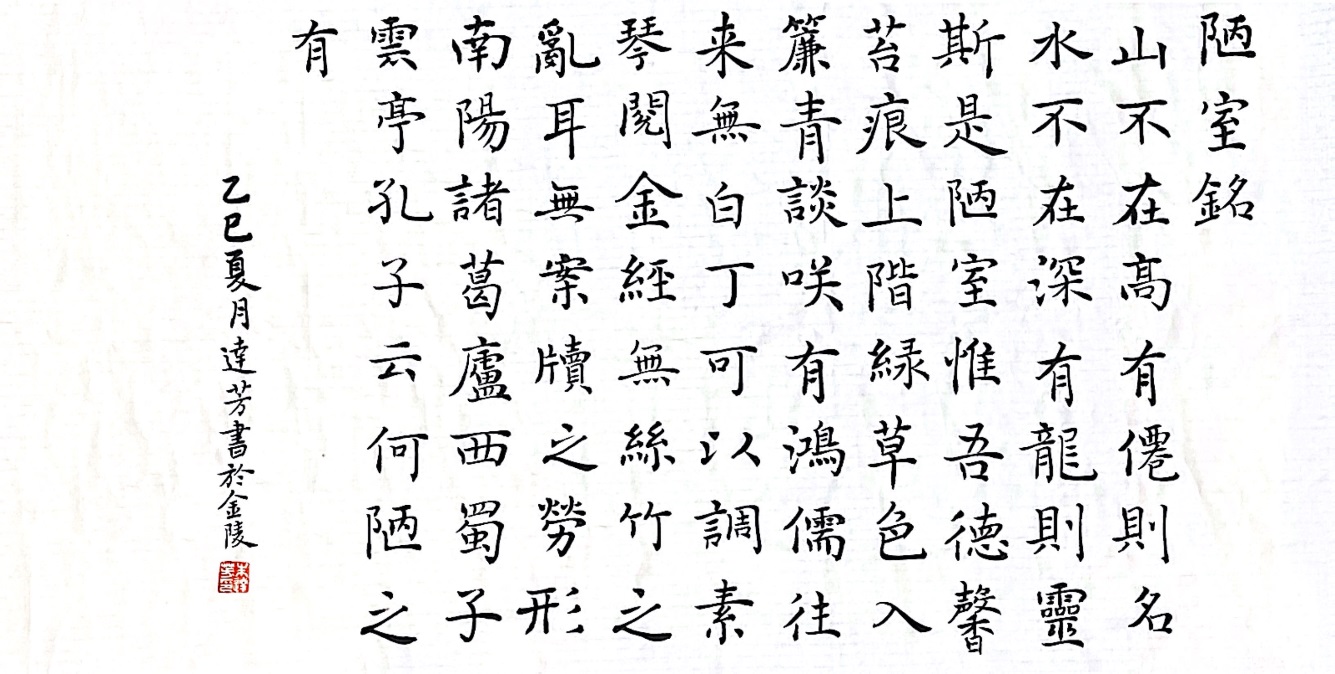 陋室銘
山不在高有僊則名
水不在深有龍則靈
斯是陋室惟吾德馨
苔痕上階緑草色入
簾青談咲有鴻儒往
来無白丁可以調素
琴閱金經無絲竹之
亂耳無案牘之勞形
南陽諸葛廬西蜀子
雲亭孔子云何陋之
有
乙巳夏月達芳書於金陵